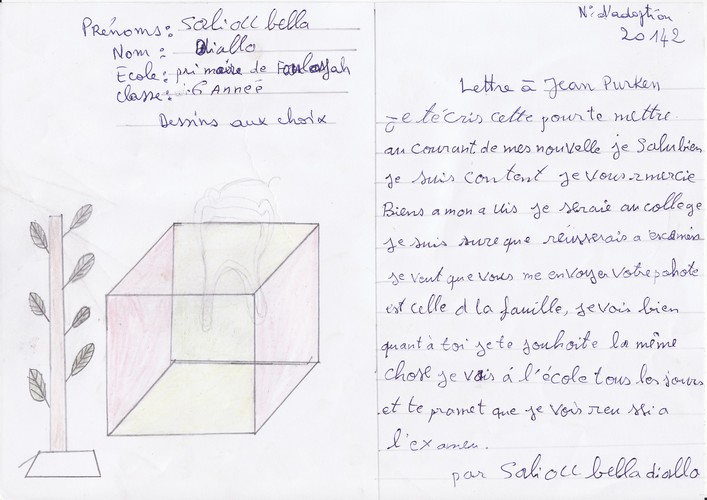 Prénoms: Saliou bella
Nom: Diallo
École: primaire de
Classe: 6 Année
Dessins aux choix
N° d'adoption
20142
Lettre à Jean Purken
Je técris cette pour te mettre
au courant de mes nouvelle je Salu bien
je suis content je vous rmercie
Biens a mon avis je seraie au collège
je suis sure que réusserais a
je veut que vous me envoyer votre
est celle d la fauille, je vois bien
quant à toi je te souhaite la même
chose je vais á l'école tous les jours
et te pramet que je vois reussi a
l'examen.
par Saliou bella diallo